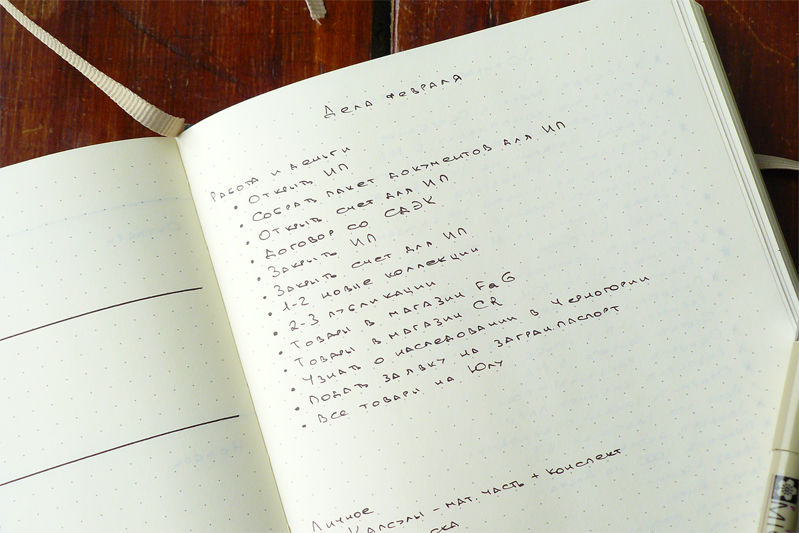 Дела февраля
Работа и деньги
• Открыть ИП
• Собрать пакет документов для ИП
• Открыть счет для ИП
• Договор со СДЭК
• Закрыть ИП
• Закрыть счет для ИП
• 1-2 новые коллекции
• 2-3 публикации
• Товары в магазин FaG
• Товары в магазин CR
• Узнать о наследовании в Черногории
• Подать заявку на загранпаспорт
• Все товары на Юлу
Личное
Капсулы - мат. часть + конспект